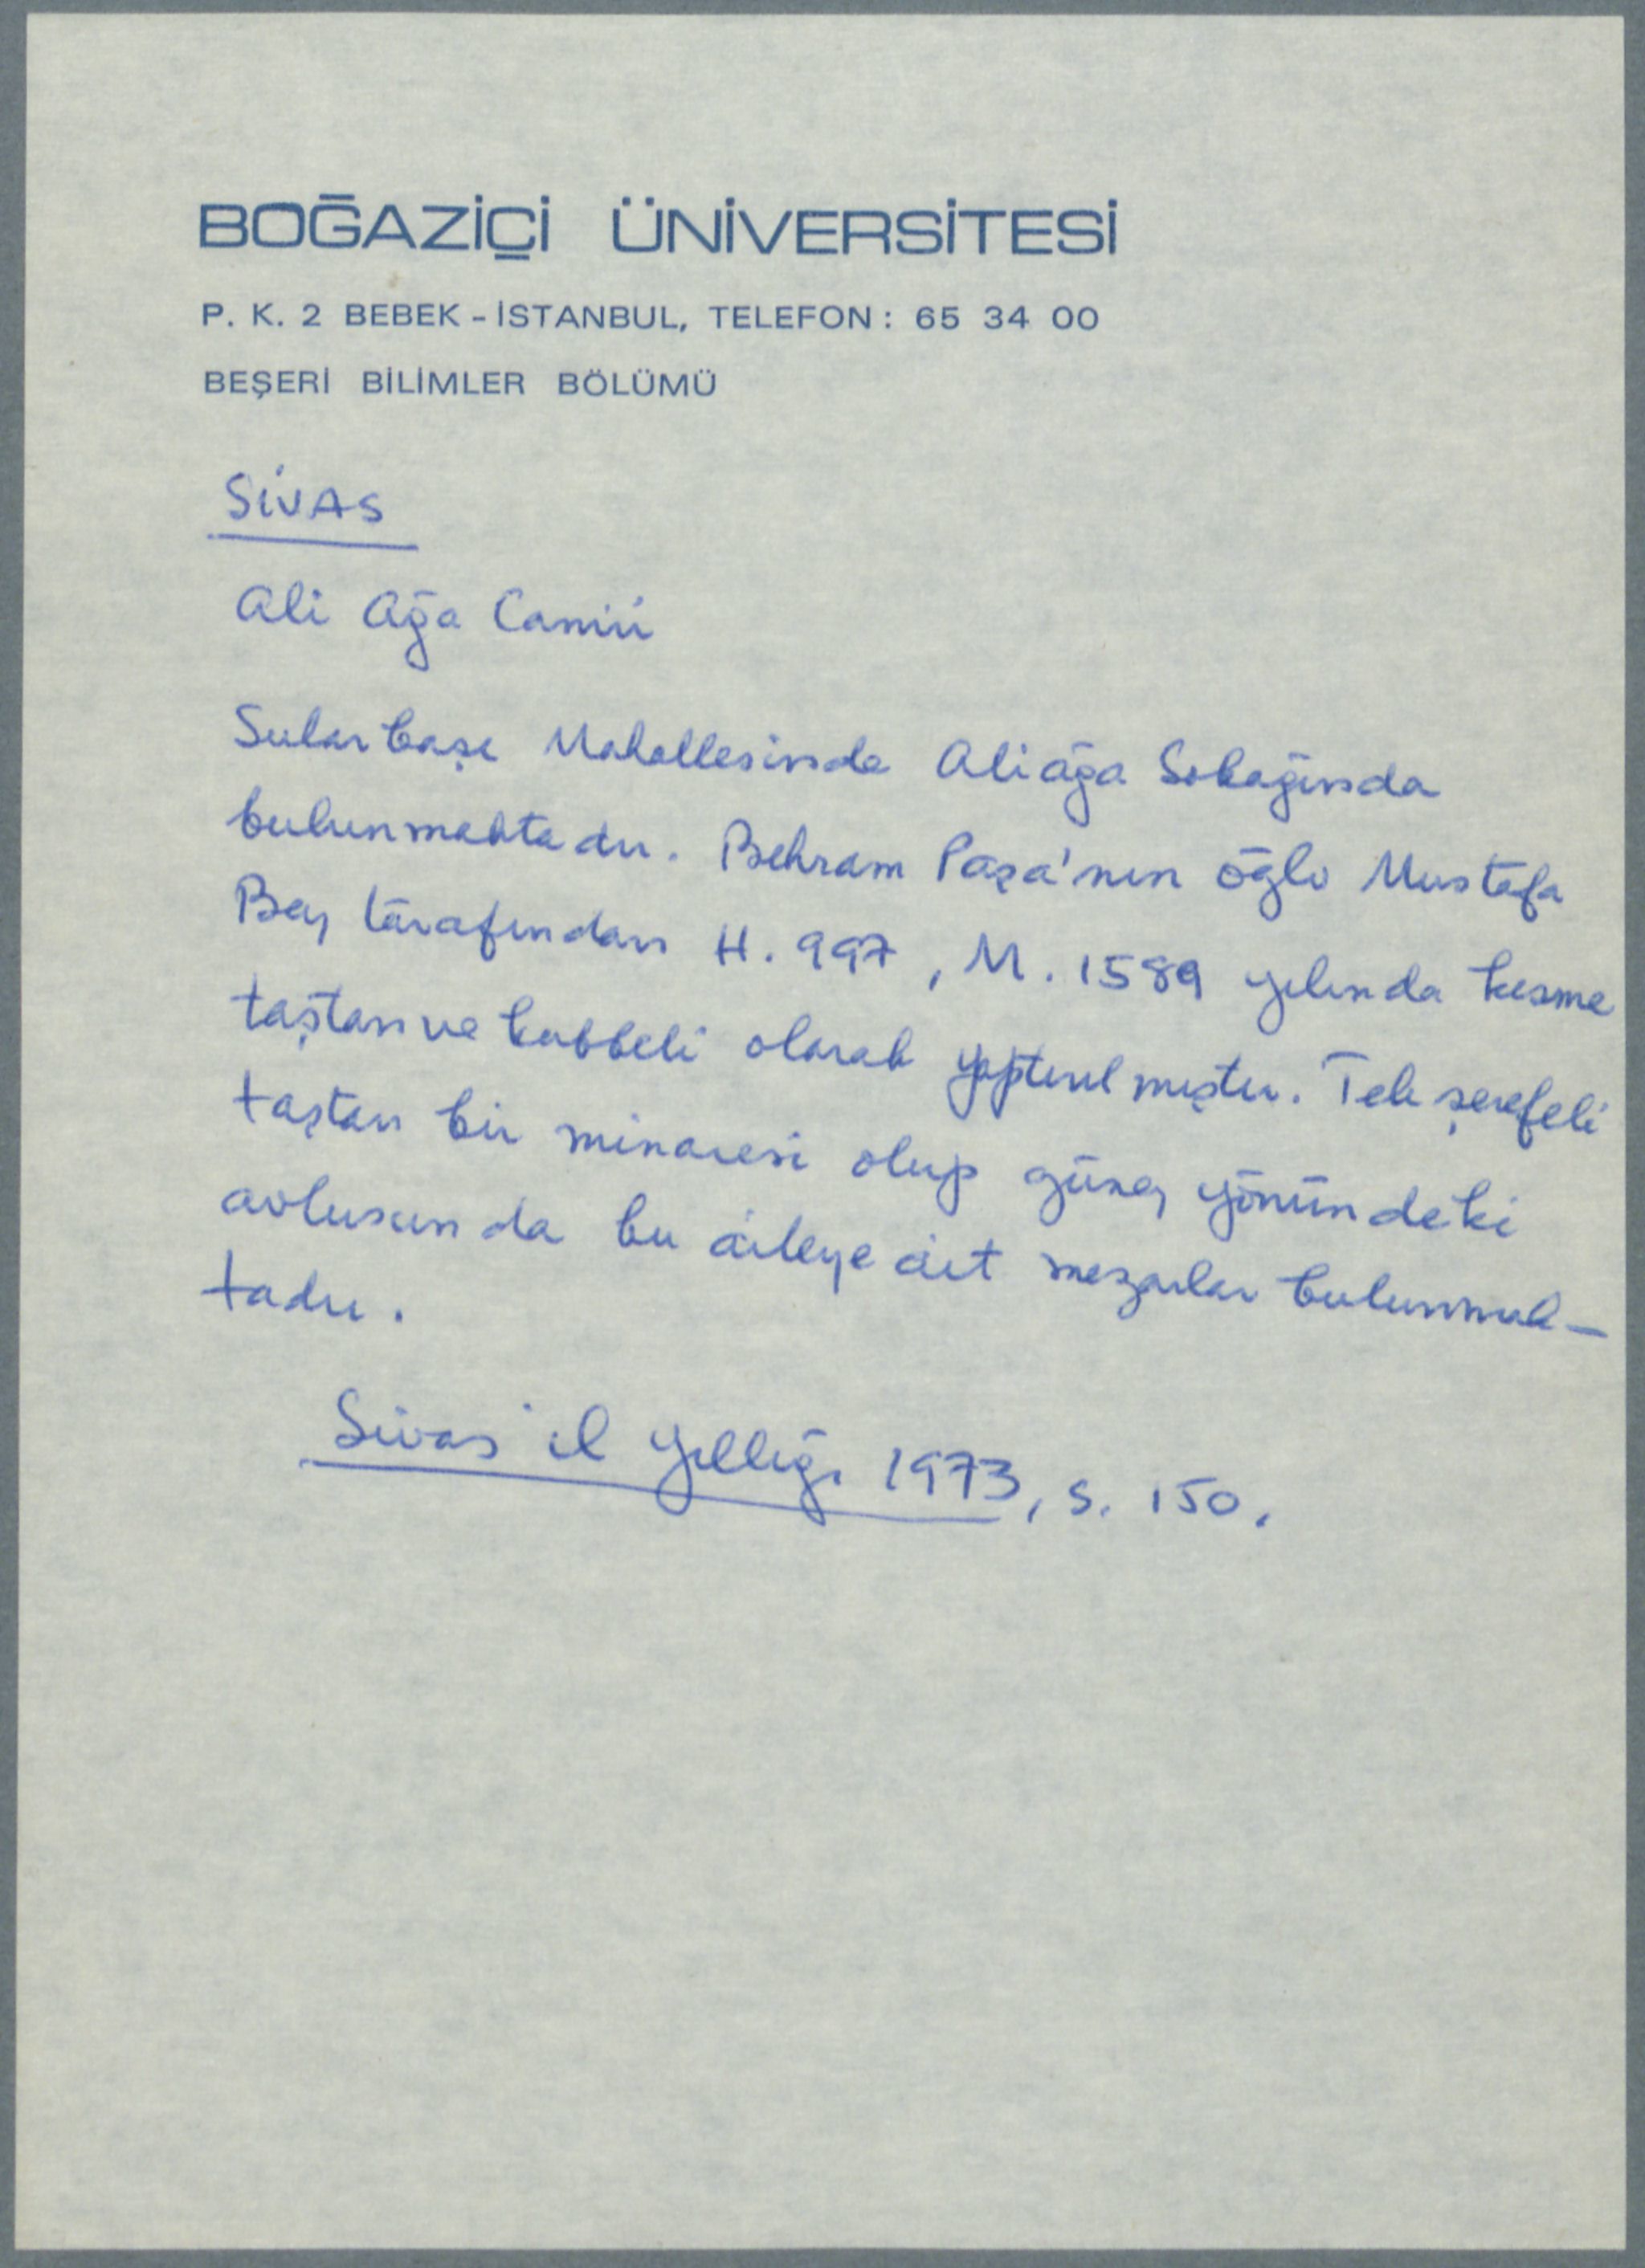 BOĞAZİÇİ ÜNİVERSİTESİ
P. K. 2 BEBEK - İSTANBUL, TELEFON : 65 34 00
BEŞERİ BİLİMLER BÖLÜMÜ
SİVAS
Ali Ağa Camii
Sularbaşı Mahallesinde Aliağa Sokağında
bulunmaktadır. Behram Paşa'nın oğlu Mustafa
Bey tarafından H. 997, M. 1589 yılında kesme
taştan ve kubbeli olarak yaptırılmıştır. Tek şerefeli
taştan bir minaresi olup güney yönündeki
avlusunda bu aileye ait mezarlar bulunmak-
tadır.
Sivas İl Yıllığı 1973, s. 150.